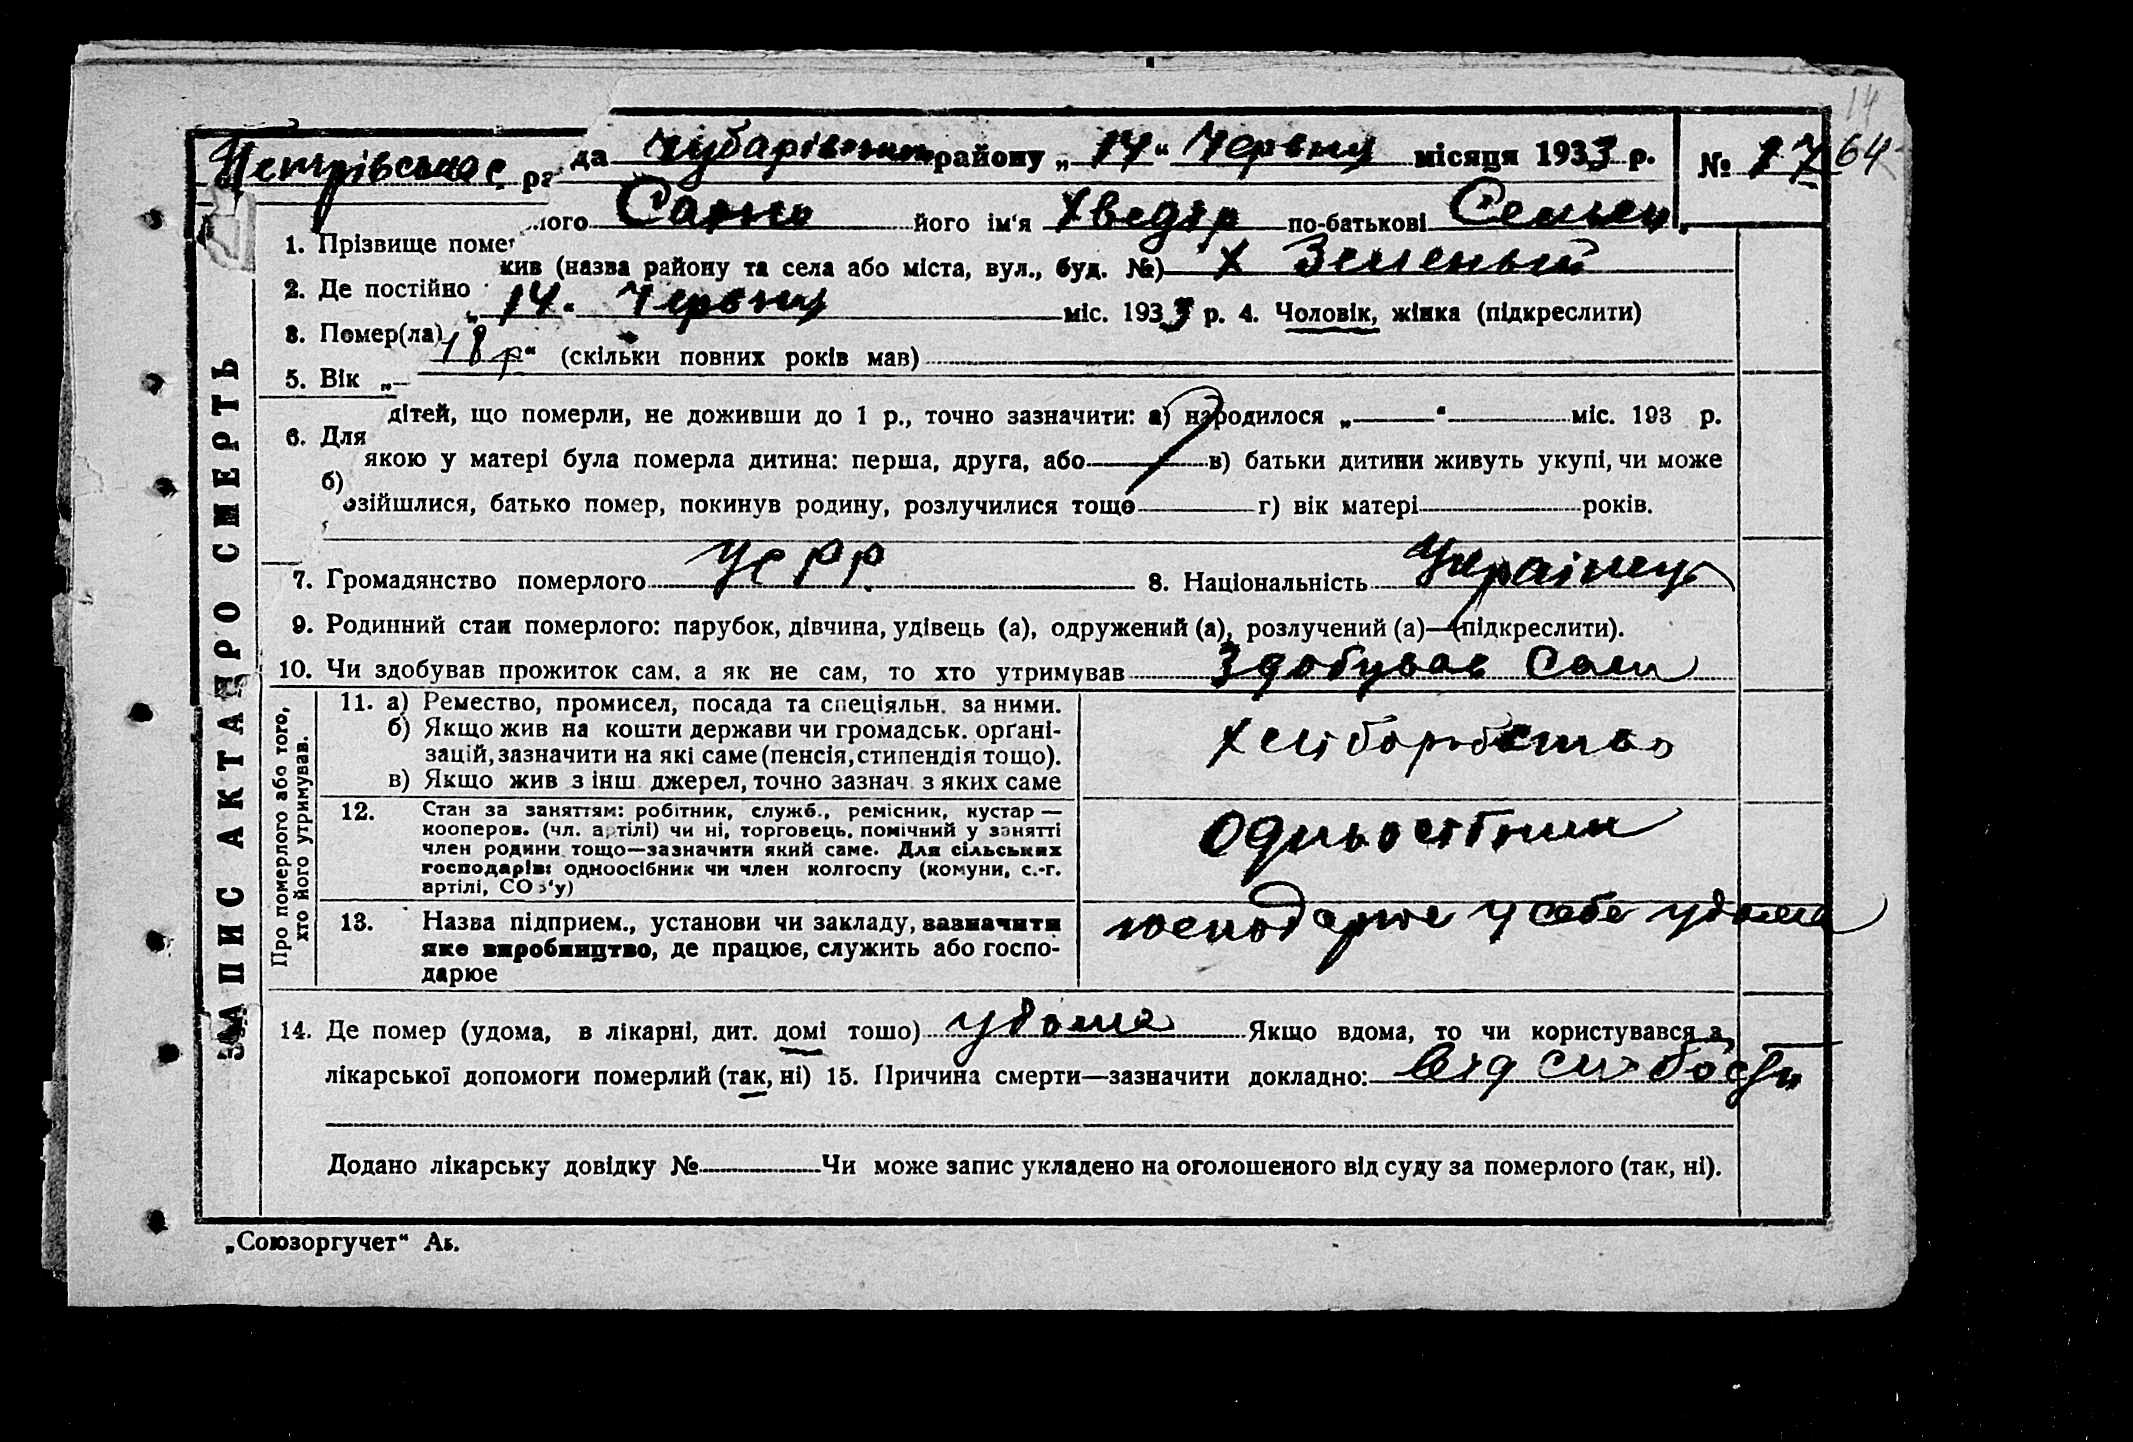 14
Петрівською с. ра да Чубарівського району „14“ Червня місяця 1933 р. № 17 64
1. Прізвище помер лого його ім‘я Хведір по-батькові Семен.
2. Де постійно жив (назва району та села або міста, вул., буд. №) Х Зеленый
3. Помер(ла) „14“ Червня міс. 1933 р. 4. Чоловік, жінка (підкреслити)
5. Вік „18 р“ (скільки повних років мав)
6. Для дітей, що померли, не доживши до 1 р., точно зазначити: а) народилося „ “ міс. 193 р.
б) якою у матері була померла дитина: перша, друга, або в) батьки дитини живуть укупі, чи може
розійшлися, батько помер, покинув родину, розлучилися тощо г) вік матері років.
7. Громадянство померлого УСРР 8. Національність Українець
9. Родинний стан померлого: парубок, дівчина, удівець (а), одружений (а), розлучений (а)—(підкреслити).
10. Чи здобував прожиток сам, а як не сам, то хто утримував Здобував Сам
ЗАПИС АКТА ПРО СМЕРТЬ
Про померлого або того, хто його утримував.
11. а) Ремество, промисел, посада та спеціяльн. за ними.
б) Якщо жив на кошти держави чи громадськ. орґані-
зацій, зазначити на які саме (пенсія, стипендія тощо).
в) Якщо жив з інш. джерел, точно зазнач. з яких саме
Хліборобство
12. Стан за заняттям: робітник, служб., ремісник, кустар —
кооперов. (чл. артілі) чи ні, торговець, помічний у занятті
член родини тощо—зазначити який саме. Для сільських
господарів: одноосібник чи член колгоспу (комуни, с.-г.
артілі, СОЗ‘у)
Одньосібник
13. Назва підприєм., установи чи закладу, зазначити
яке виробництво, де працює, служить або госпо-
дарює
господарює у себе удома
14. Де помер (удома, в лікарні, дит. домі тошо) удома Якщо вдома, то чи користувався з
лікарської допомоги померлий (так, ні) 15. Причина смерти—зазначити докладно: від
Додано лікарську довідку № Чи може запис укладено на оголошеного від суду за померлого (так, ні).
„Союзоргучет“